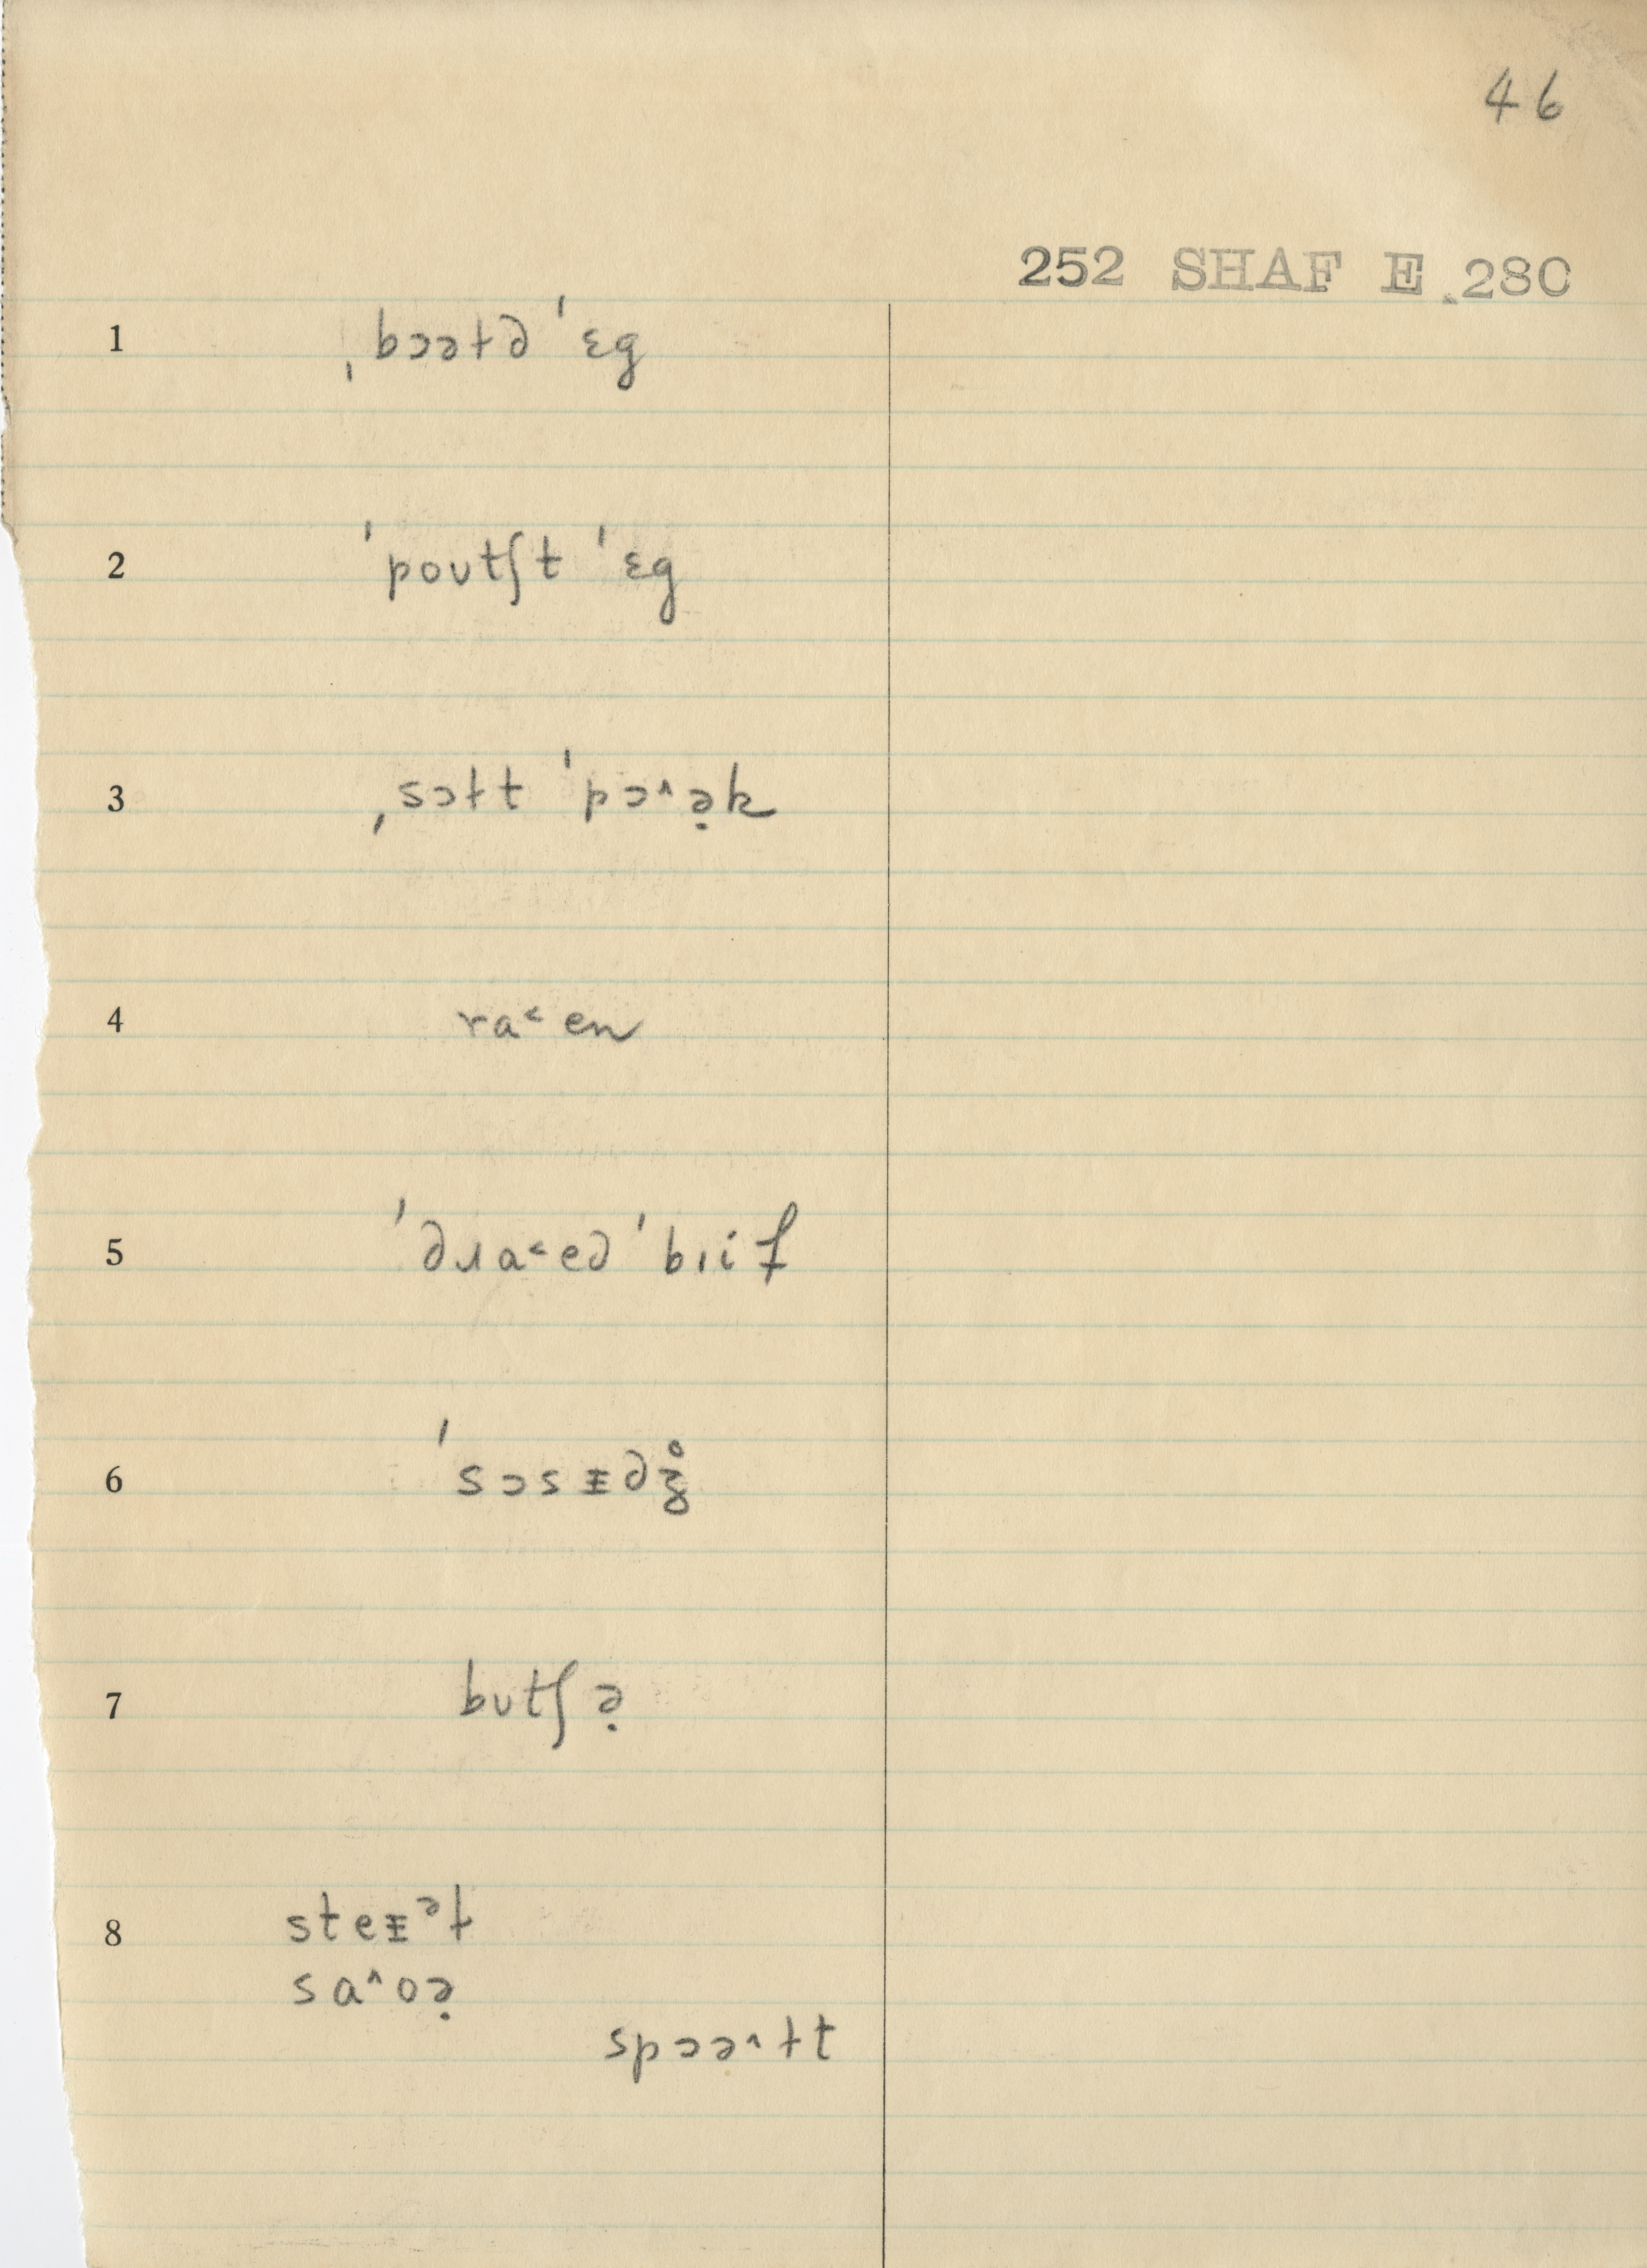 46
252 SHAF E.280
1 ˌbɔətə ˈɛg
2 ˈpoʊtʃt ˈɛg
3 ˌsɔɫt ˈpɔ˄ə̣k
4 ra˂en
5 ˈəɹa˂eə ˈbɪif
6 ˈsɔsᵻəʒ̊
7 bʊtʃə̣
8 steᵻᵊɫ
sa˄oə̣
spɔə˄ɫt